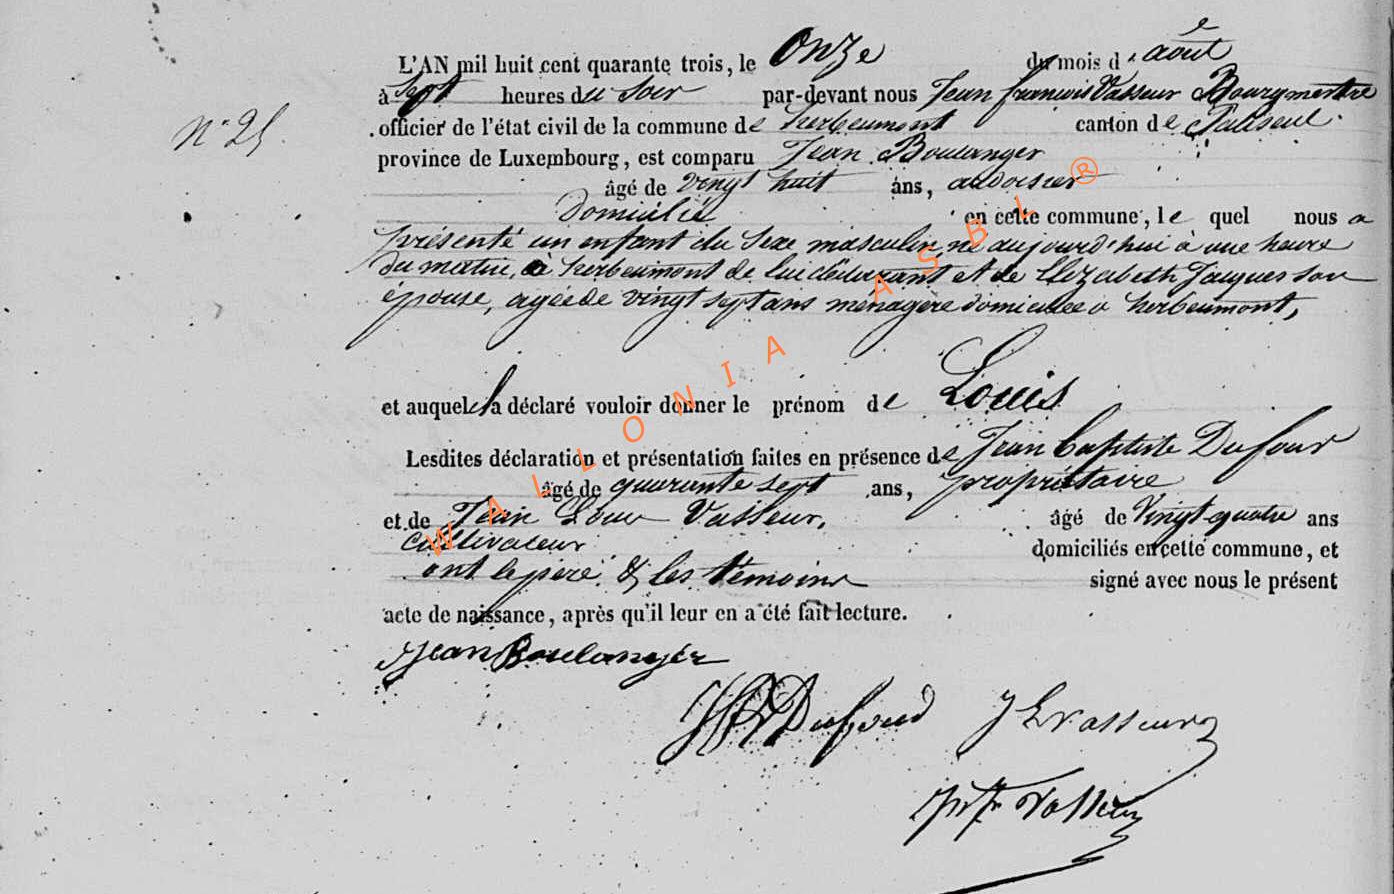 L'AN mil huit cent quarante trois, le Onze du mois d'août
à sept heures du soir par-devant nous Jean françois Vasseur Bourgmestre
N° 25.
officier de l'état civil de la commune de herbeumont canton de Paliseul.
province de Luxembourg, est comparu Jean Boulanger
âgé de vingt huit ans, ardoisier
Domicilié en cette commune, le quel nous a
présenté un enfant du sexe masculin, né aujourd'hui à une heure
du matin, à herbeumont de lui déclarant et de Elizabeth Jacques son
épouse, agée de vingt sept ans menagère domiciliée a herbeumont,
et auquel il a déclaré vouloir donner le prénom de Louis
Lesdites déclaration et présentation faites en présence de Jean baptiste Dufour
âgé de quarante sept ans, propriétaire
et de Jean Louis Vasseur, âgé de Vingt-quatre ans
cultivateur domiciliés en cette commune, et
ont le père & les témoins signé avec nous le présent
acte de naissance, après qu'il leur en a été fait lecture.
Jean Boulanger
Dufour J L Vasseur
Vasseur
WALLONIA ASBL ®